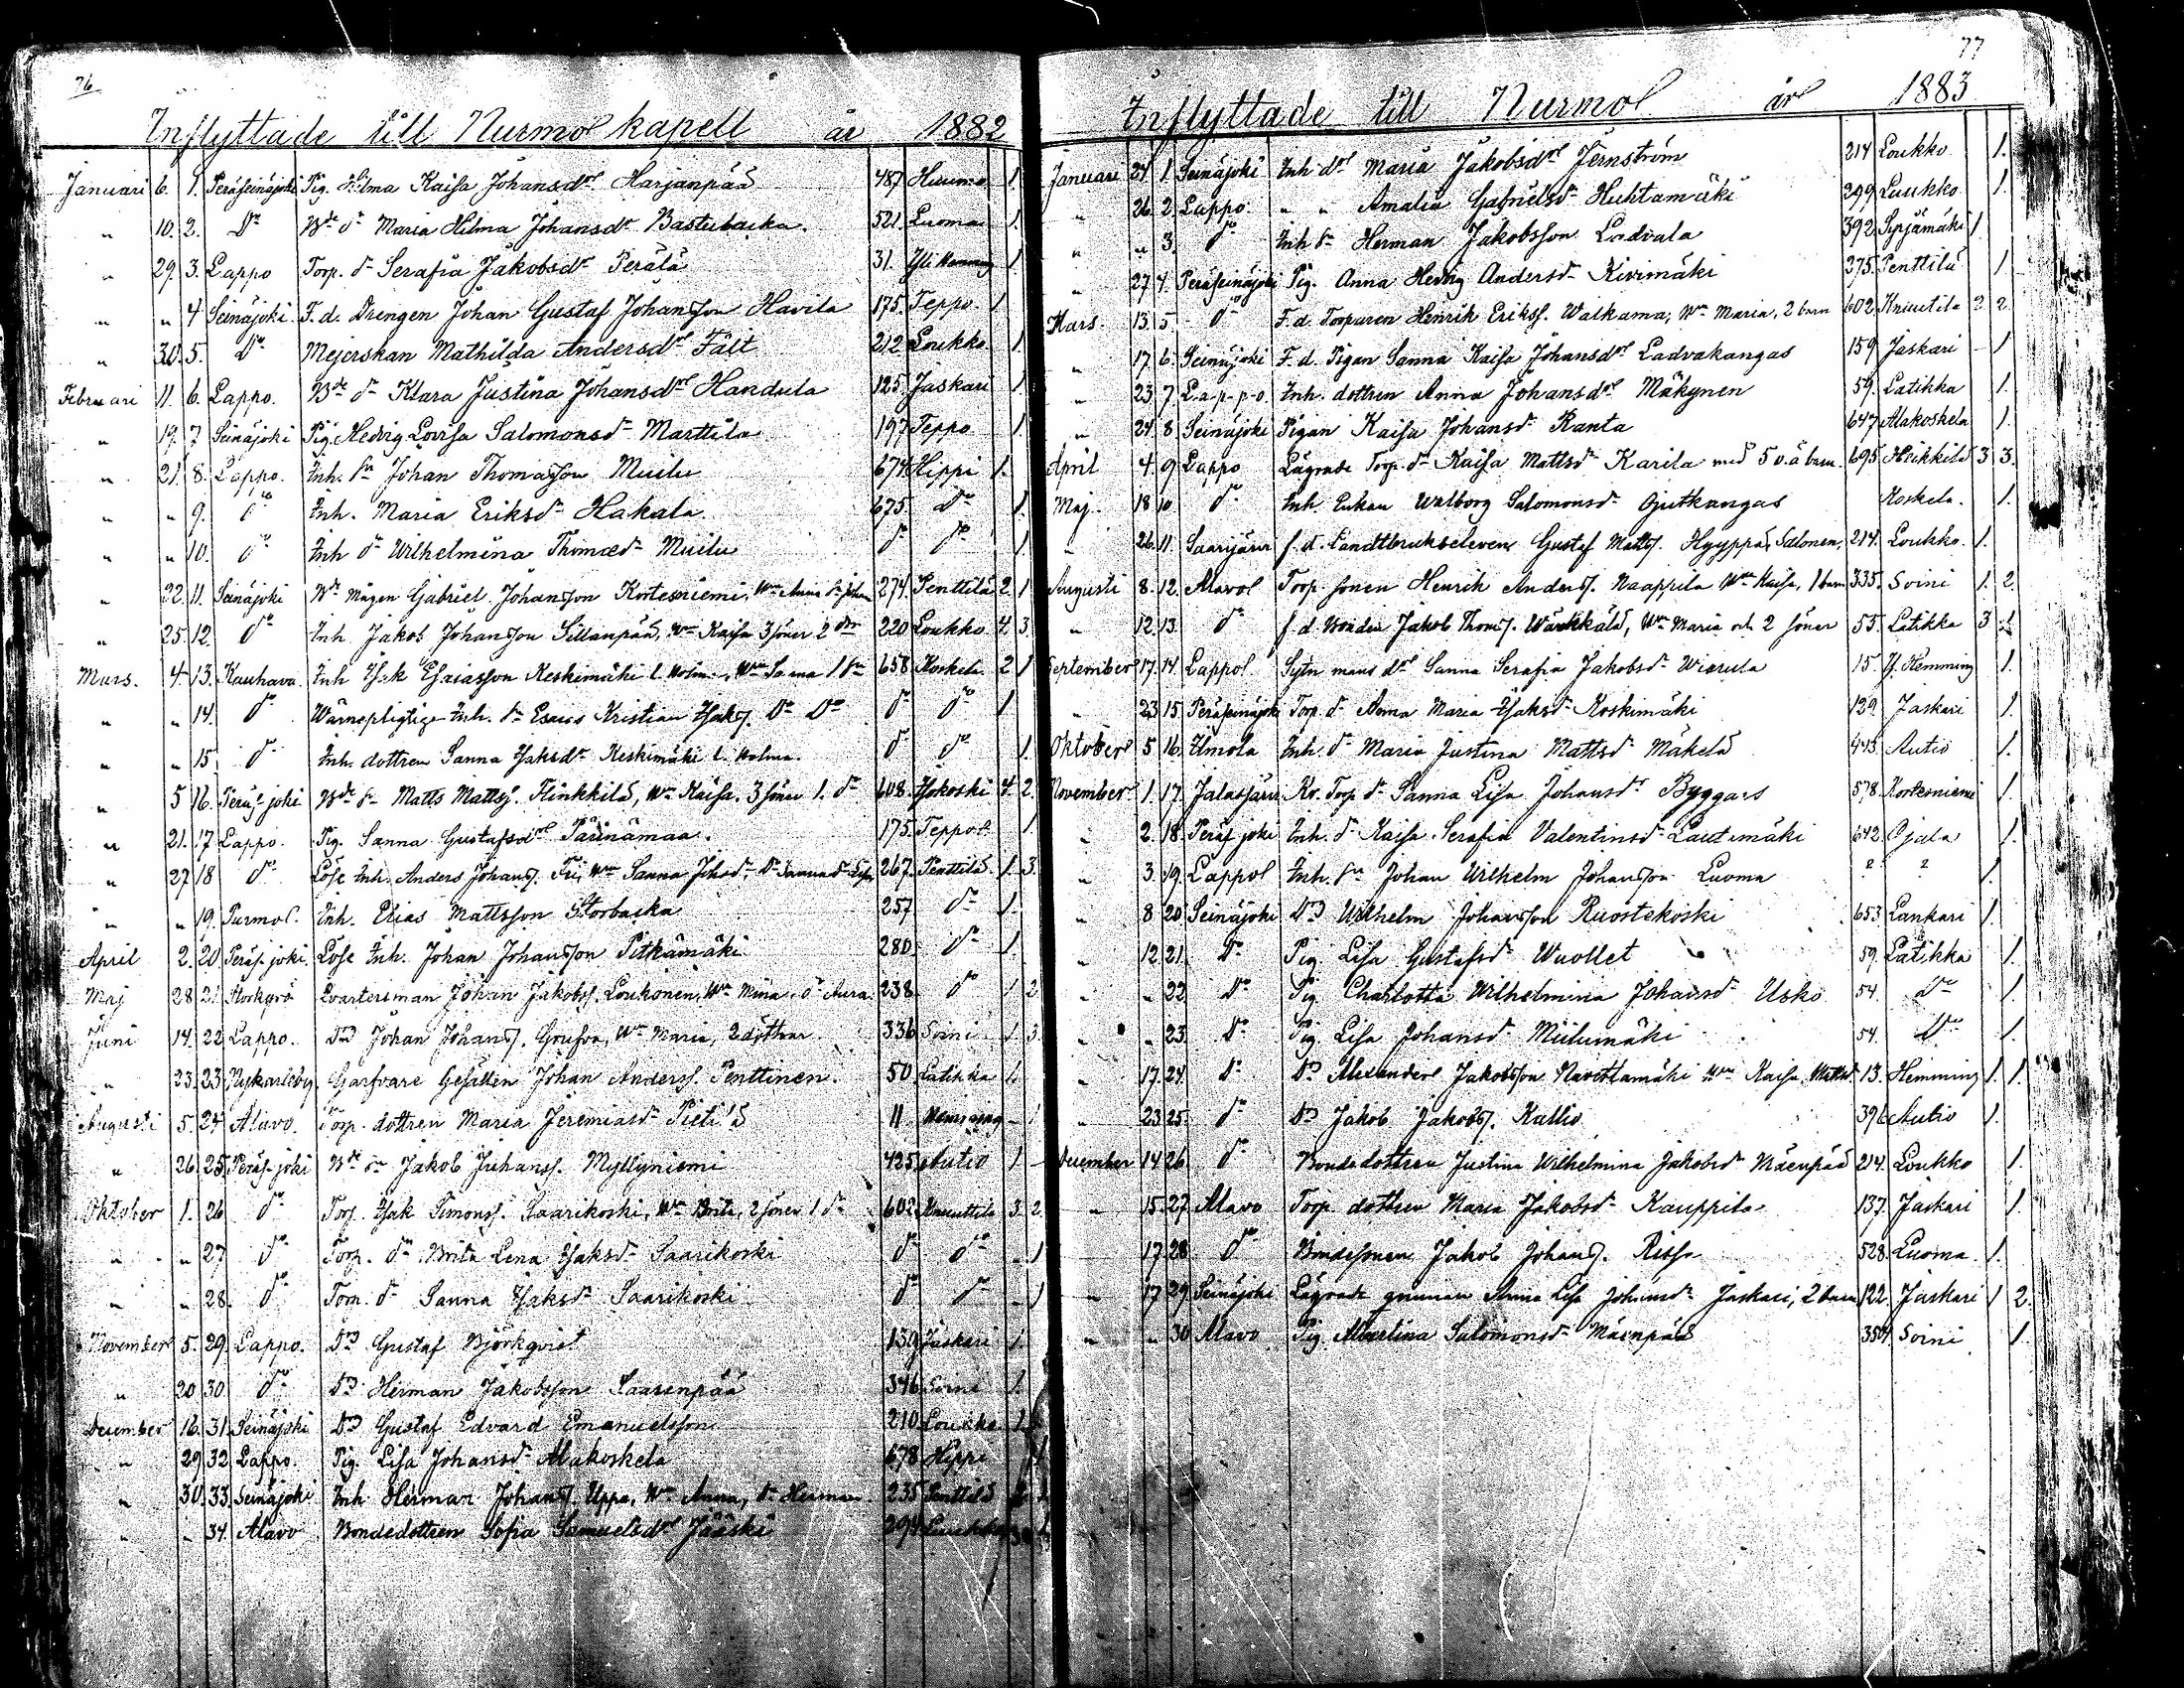 76
Inflyttade till Nurmo kapell år 1882
Januari 6. 1. Peräseinäjoki Pig. Hilma Kaisa Johansdr Harjanpää 487 Huumo 1
" 10. 2. Do Bde dr Maria Hilma Johansdr Bastubacka. 521. Luoma 1.
" 29. 3. Lappo Torp. dr Serafia Jakobsdr Perälä 31. Yli Hemming 1
" " 4 Seinäjoki. F. d. Drengen Johan Gustaf Johansson Havila 175. Teppo 1
" 30. 5. Do Mejerskan Mathilda Andersdr Fält 212 Loukko 1.
Februari 11. 6. Lappo. Bde dr Klara Justina Johansdr Handula 125. Jaskari 1.
" 19. 7 Seinäjoki Pig. Hedvig Lovisa Salomonsdr Marttila 197 Teppo 1.
" 21. 8. Lappo. Inh. sn Johan Thomasson Muilu 674 Hippi 1.
" " 9. do Inh. Maria Eriksdr Hakala. 675. do 1.
" " 10. do Inh dr Wilhelmina Thomasdr Muilu do do 1.
" 22. 11. Seinäjoki Bde mågen Gabriel Johansson Kortesniemi, 274. Penttilä 2. 1
" 25. 12. do Inh. Jakob Johansson Sillanpää, Hn Kaisa 3 söner 2 dr 220 Loukko 4. 3
Mars. 4. 13. Kauhava. Inh Isak Esaiasson Keskimäki l. Holm, Hn Sanna 1 sn 658 Koskela 2 1
" " 14. do Wärnepligtige Inh. sn Esaias Kristian Isaks. Do Do do do 1
" " 15 do Inh. dottren Sanna Isaksdr Keskimäki l. Holma. do do 1.
" 5 16. Peräs-joki Bde sn Matts Mattss. Hinkkilä, Hn Kaisa. 3 söner 1. dr 608. Ylikoski 4. 2.
" 21. 17 Lappo. Pig. Sanna Gustafsdr Pärinämaa. 175. Teppo 1.
" 27 18 do Löse Inh. Anders Johans. Hn Sanna 267. Penttilä 1. 3.
" " 19. Purmo. Inh. Elias Mattsson Storbacka 257 do 1.
April 2. 20 Peräs-joki. Löse Inh. Johan Johansson Pitkämäki 280. do 1.
Maj 28 21. Qvartersman Johan Jakobss. Loukonen, Hn Mina, dr Aura. 238. do 1 2
Juni 14. 22 Lappo. Dr Johan Johans. Hn Maria, 2 döttrar 336 Soini 1. 3.
" 23. 23 Nykarleby Garfvare Gesällen Johan Anderss. Penttinen. 50 Latikka 1.
Augusti 5. 24 Alavo. Torp. dottren Maria Jeremiasdr Pietilä 11 Hemming - 1
" 26. 25. Peräs-joki Bde sn Jakob Juhanss. Myllyniemi 425 Autio 1 -
Oktober 1. 26 do Torp. Isak Simonss. Saarikoski, Hn Brita, 2 söner 1 dr 602. Knuuttila 3. 2.
" " 27 do Torp. dr Brita Lena Isaksdr Saarikoski do do - 1
" " 28. do Torp. dr Sanna Isaksdr Saarikoski do do - 1
November 5. 29. Lappo. Dr Gustaf Björkqvist 139 Jaskari 1.
" 20 30. do Dr Herman Jakobsson Saarenpää 346 Soini 1.
December 16. 31. Seinäjoki Dr Gustaf Edvard Emanuelsson 210 Loukko 1.
" 29 32 Lappo. Pig. Lisa Johansdr Alakoskela 678 Hippi 1
" 30. 33. Seinäjoki Inh Herman Johans. Uppa, Hn Anna, sn Herman 235 Penttilä 2 1
" " 34. Alavo Bondedottren Sofia Samuelsdr Jääski 294 Luukko
77
Inflyttade till Nurmo år 1883
Januari 24. 1. Seinäjoki Inh dr Maria Jakobsdr Jernström 214 Loukko 1.
" 26. 2. Lappo. " " Amalia Gabrielsdr Huhtamäki 299 Luukko 1.
" " 3 do Inh sn Herman Jakobsson Ladvala 392 Syrjämäki 1
" 27 4. Peräseinäjoki Pig. Anna Hedvig Andersdr Kivimäki 275. Penttilä 1
Mars. 13. 5 do F. d. Torparen Henrik Erikss. Walkama, Hn Maria, 2 barn 602. Knuutila 2 2
" 17 6. Seinäjoki F. d. Pigan Sanna Kaisa Johansdr Ladvakangas 159 Jaskari - 1
" 23. 7. Lappo. Inh. dottren Anna Johansdr Mäkynen 59. Latikka 1.
" 24. 8 Seinäjoki Pigan Kaisa Johansdr Ranta 647 Alakoskela 1.
April 4. 9 Lappo Lägrade Torp. dr Kaisa Mattsdr Karila med 5 o. ä. barn. 695. Heikkilä 3 3.
Maj. 18 10 do Inh. Enkan Walborg Salomonsdr Ojutkangas Koskela. 1.
" 26 11. Saarijärvi f. d. Landtbrukseleven Gustaf Mattss. Hyyppä, Salonen, 214. Loukko. 1.
Augusti 8. 12. Alavo Torp. sonen Henrik Anderss. Naappila Hn Kaisa, 1 barn 335. Soini 1. 2.
" 12. 13. do f. d. Bonden Jakob Thoms. Wärkkälä, Hn Maria och 2 söner 55. Latikka 3 1.
September 17. 14. Lappo Sytn. mans dr Sanna Serafia Jakobsdr Wiarula 15. Y. Hemming 1.
" 23 15. Peräseinäjoki Torp. dr Anna Maria Isaksdr Koskimäki 129. Jaskari 1.
Oktober 5 16. Ilmola Inh. dr Maria Justina Mattsdr Mäkelä 443. Autio 1.
November 1. 17. Jalasjärvi Kr. Torp dr Sanna Lisa Johansdr Byggars 578. Kortesniemi 1.
" 2. 18. Peräs joki Inh. dr Kaisa Serafia Valentinsdr Lautamäki 642 Ojala 1.
" 3. 19. Lappo Inh. sn Johan Wilhelm Johansson Luoma ? ? 1.
" 8. 20. Seinäjoki Dr Wilhelm Johansson Ruostekoski 653 Lankari 1.
" 12. 21. Do Pig. Lisa Gustafsdr Wuollet 59. Latikka 1.
" " 22 Do Pig. Charlotta Wilhelmina Johansdr Usko 54. do 1.
" " 23. Do Pig. Lisa Johansdr Miilumäki 54. do 1.
" 17. 24. do Dr Alexander Jakobsson Navettamäki Hn Kaisa Mattsdr 13. Hemming 1. 1.
" 23 25. do Dr Jakob Jakobs. Kallio 396 Autio 1.
December 14 26 do Bondedottren Justina Wilhelmina Jakobsdr Mäenpää 214. Loukko 1.
" 15. 27 Alavo Torp. dottren Maria Jakobsdr Kauppila 137. Jaskari 1.
" 17. 28 do Bondesonen Jakob Johans. Rissa 528. Luoma. 1.
" 17 29 Seinäjoki Lägrade qvinnan Anna Lisa Johansdr Jaskari, 2 barn 122. Jaskari 1 2.
" " 30 Alavo Pig. Albertina Salomonsdr Mäenpää 354. Soini 1.